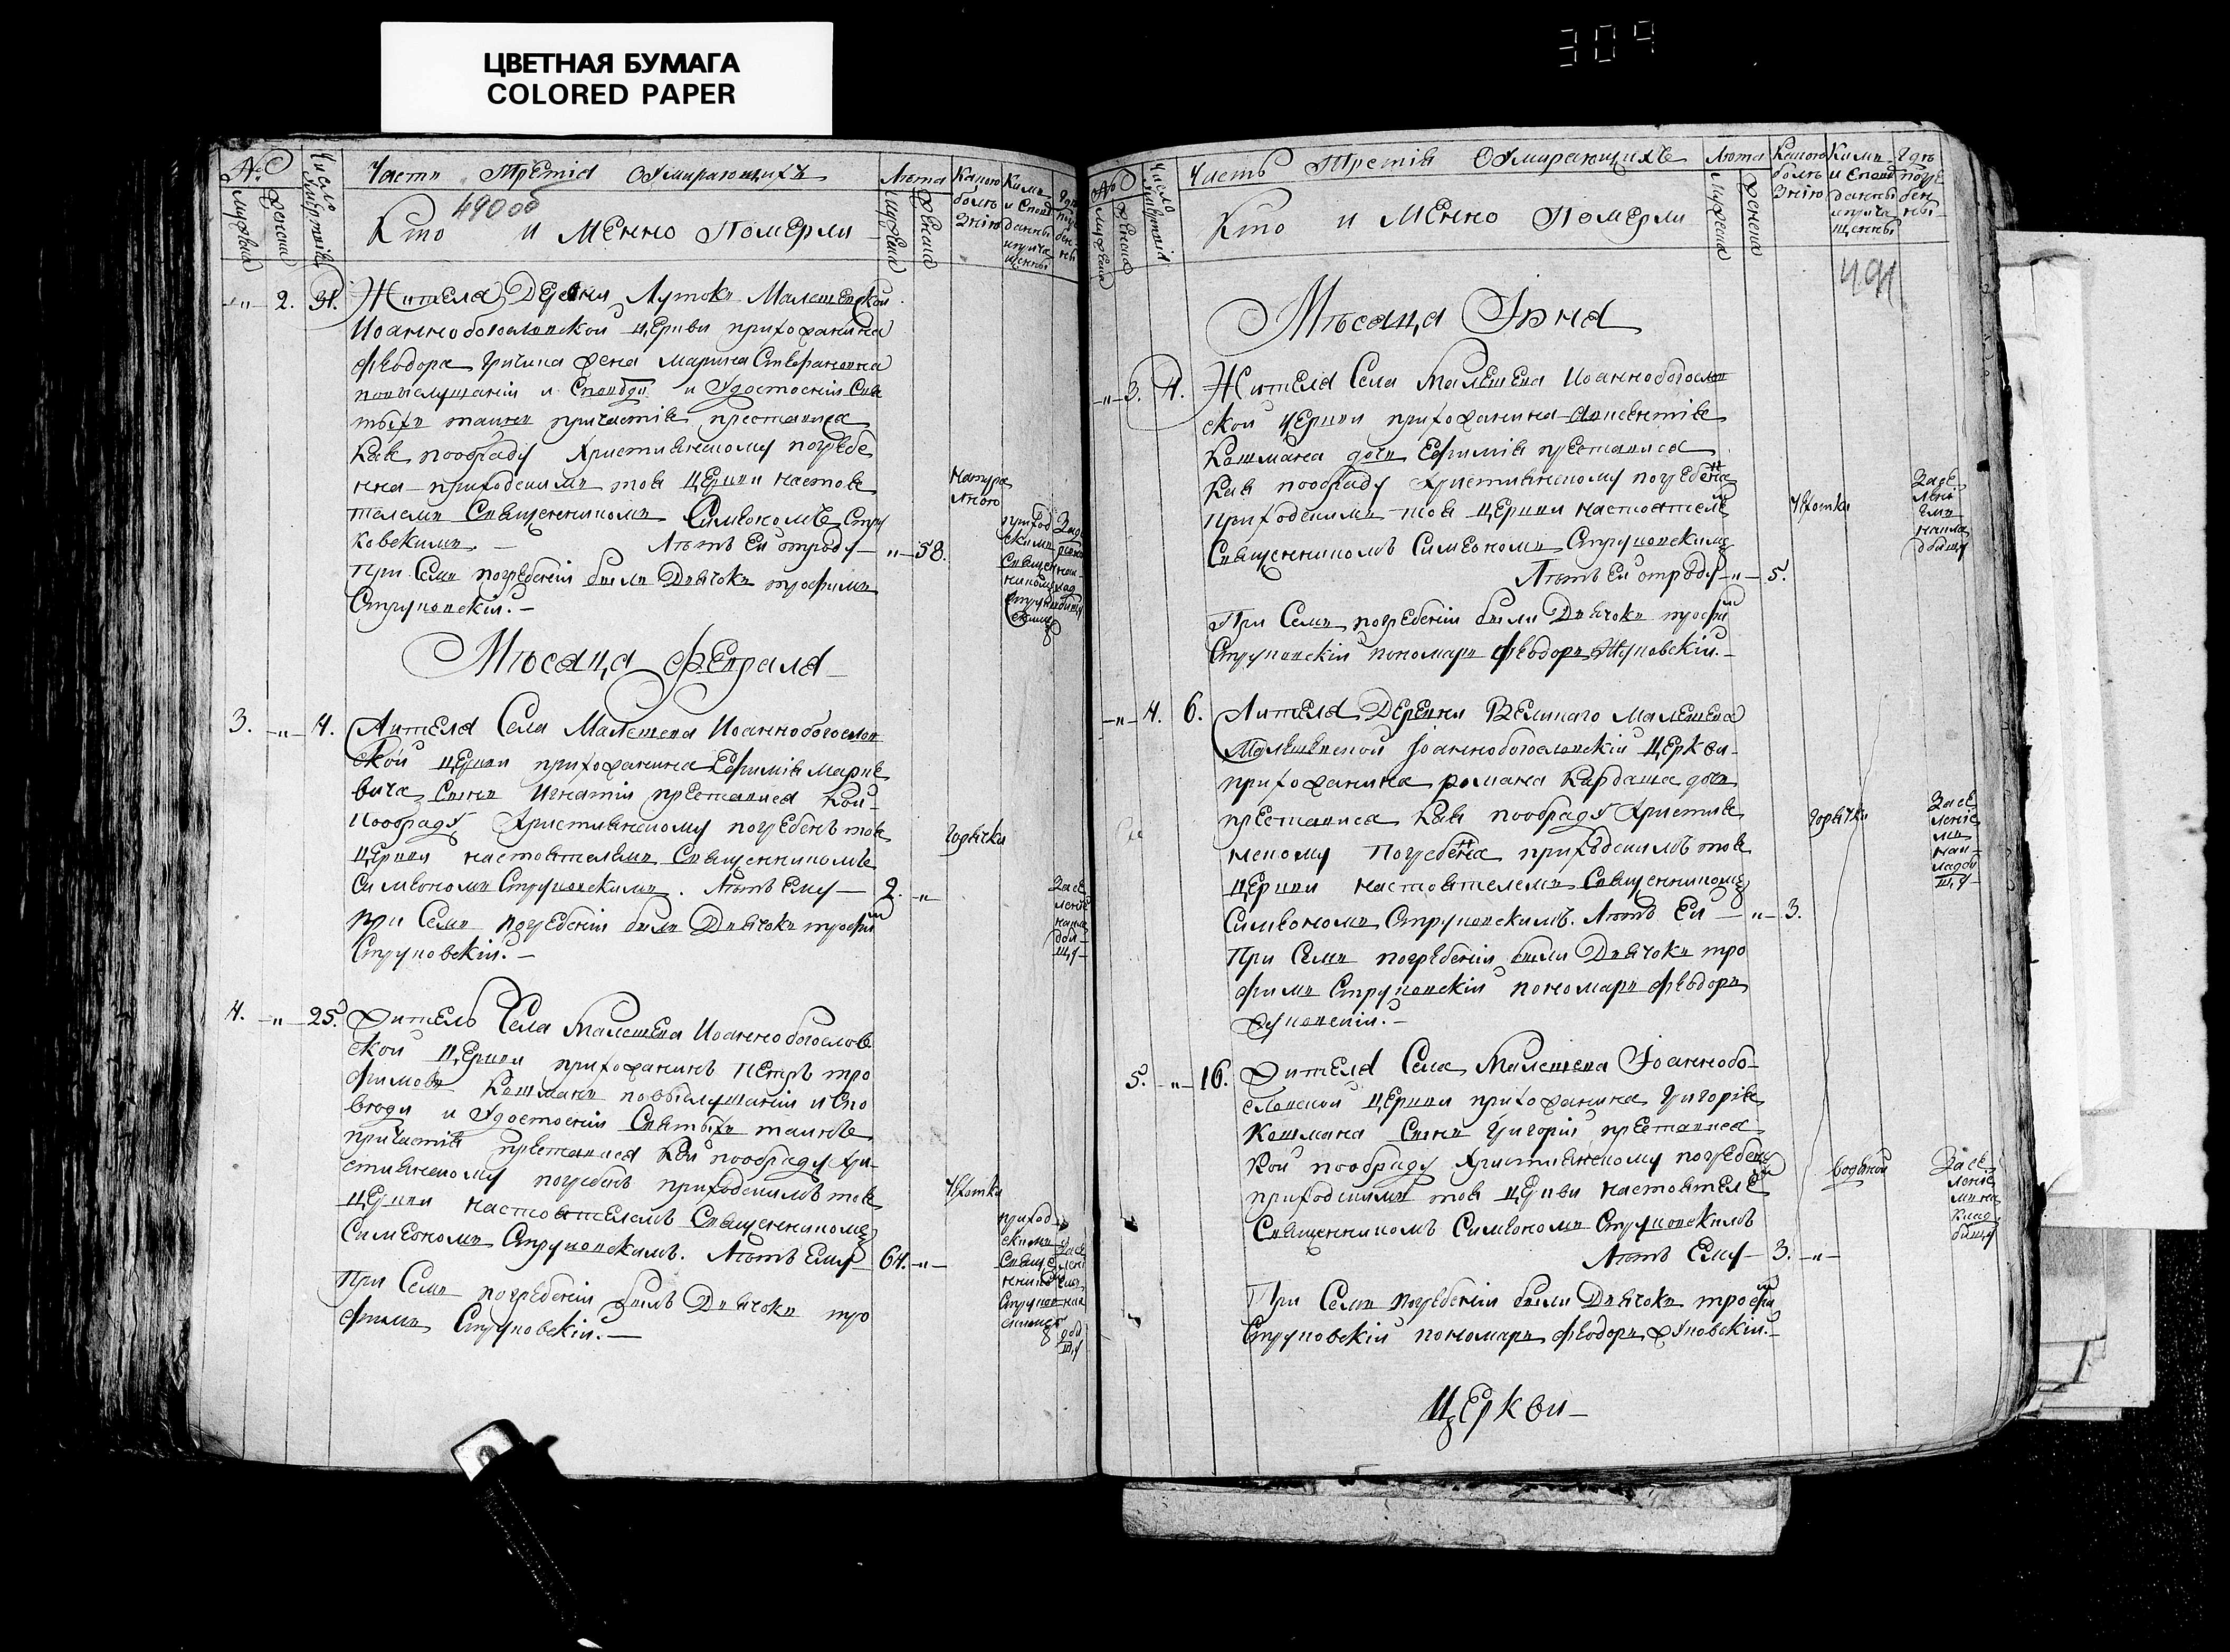 ЦВЕТНАЯ БУМАГА
COLORED PAPER
309
№
мужеска
женска
Число умертвія
Части Третія О Умирающихъ
490 об
Кто и Менно Померли
Лѣта
мужеска
женска
Какою болѣзнію
Кимъ и Сповѣданы и прича щенны
Гдѣ погребенны
2. 31. Жителя Деревни Лутокъ Малешевской
Иоаннобогословской церкви прихожанина
Феодора Гричина жена Марина Стефановна
повыслушаніи и Сповѣди и Удостоеніи Свя
тыхъ таинъ причастія преставися
Кая пообряду Християнскому погребе
нна приходскимъ тоя Церкви настоя
телемъ Священникомъ Симеономъ Стру
ковскимъ. — Лѣтъ Ей отроду — „ — 58.
При Семъ погребеніи были Дьячокъ трофимъ
Струковскій. —
натура
лною
приход
скимъ
Священ
никомъ
Мѣсаца Февраля
3. — „ — 4. Жителя Села Малешева Иоаннобогослов
ской церкви прихожанина Ефимія Марке
вича Сынъ Игнатій преставися Кой
пообряду Християнскому погребенъ тоя
Церкви настоятелемъ Священникомъ
Симеономъ Струковскимъ. Лѣтъ Ему — 2. „
при Семъ погребеніи были Дьячокъ трофим
Струковскій. —
горячка
4. — „ — 25. Житель Села Малешева Иоаннобогослов
ской Церкви прихожанинъ Петръ тро
фимовъ Кошманъ повыслушаніи и Спо
вѣди и Удостоеніи Святыхъ таинъ
причастія преставися Кой пообряду Хри
стиянскому погребенъ приходскимъ тоя
Церкви настоятелемъ Священникомъ
Симеономъ Струковскимъ. Лѣтъ Ему 64. — „ —
При Семъ погребеніи были Дьячокъ тро
фимъ Струковскій. —
чахотка
приход
скимъ
№
мужеска
женска
Число умертвія
Часть Третія О Умирающихъ
Кто и Менно Померли
Лѣта
мужеска
женска
Какою болѣзнію
Кимъ и Сповѣданны и прича щенны
Гдѣ погребенны
491
Мѣсаца Іюня
— „ — 3. 4. Жителя Села Малешева Иоаннобогослов
ской Церкви прихожанина
Кошмана дочь Ефимія преставися
Кая пообряду Християнскому погребенна
приходскимъ тоя Церкви настоятелем
Священникомъ Симеономъ Струковскимъ
Лѣтъ Ей отроду — „ — 5.
При Семъ погребеніи были Дьячокъ трофим
Струковскій пономарь Феодоръ Жуковскій. —
чахотка
— „ — 4. 6. Жителя Деревни Великаго Малешева
Малешевской Іоаннобогословскій Церкви
прихожанина романа Кардаша дочь
преставися Кая пообряду Христия
нскому Погребенна приходскимъ тоя
Церкви настоятелемъ Священникомъ
Симеономъ Струковскимъ. Лѣтъ Ей — „ — 3.
При Семъ погребеніи были Дьячокъ тро
фимъ Струковскій пономарь Феодоръ
Жуковскій. —
горячка
5. — „ — 16. Жителя Села Малешева Іоаннобо
словской Церкви прихожанина Григорія
Кошмана Сынъ Григорій преставися
Кой пообряду Християнскому погребенъ
приходскимъ тоя Церкви настоятеле
Священникомъ Симеономъ Струковскимъ
Лѣтъ Ему — 3. — „ —
При Семъ погребеніи были Дьячокъ трофим
Струковскій пономарь Феодоръ Жуковскій. —
водяной
Церкви —